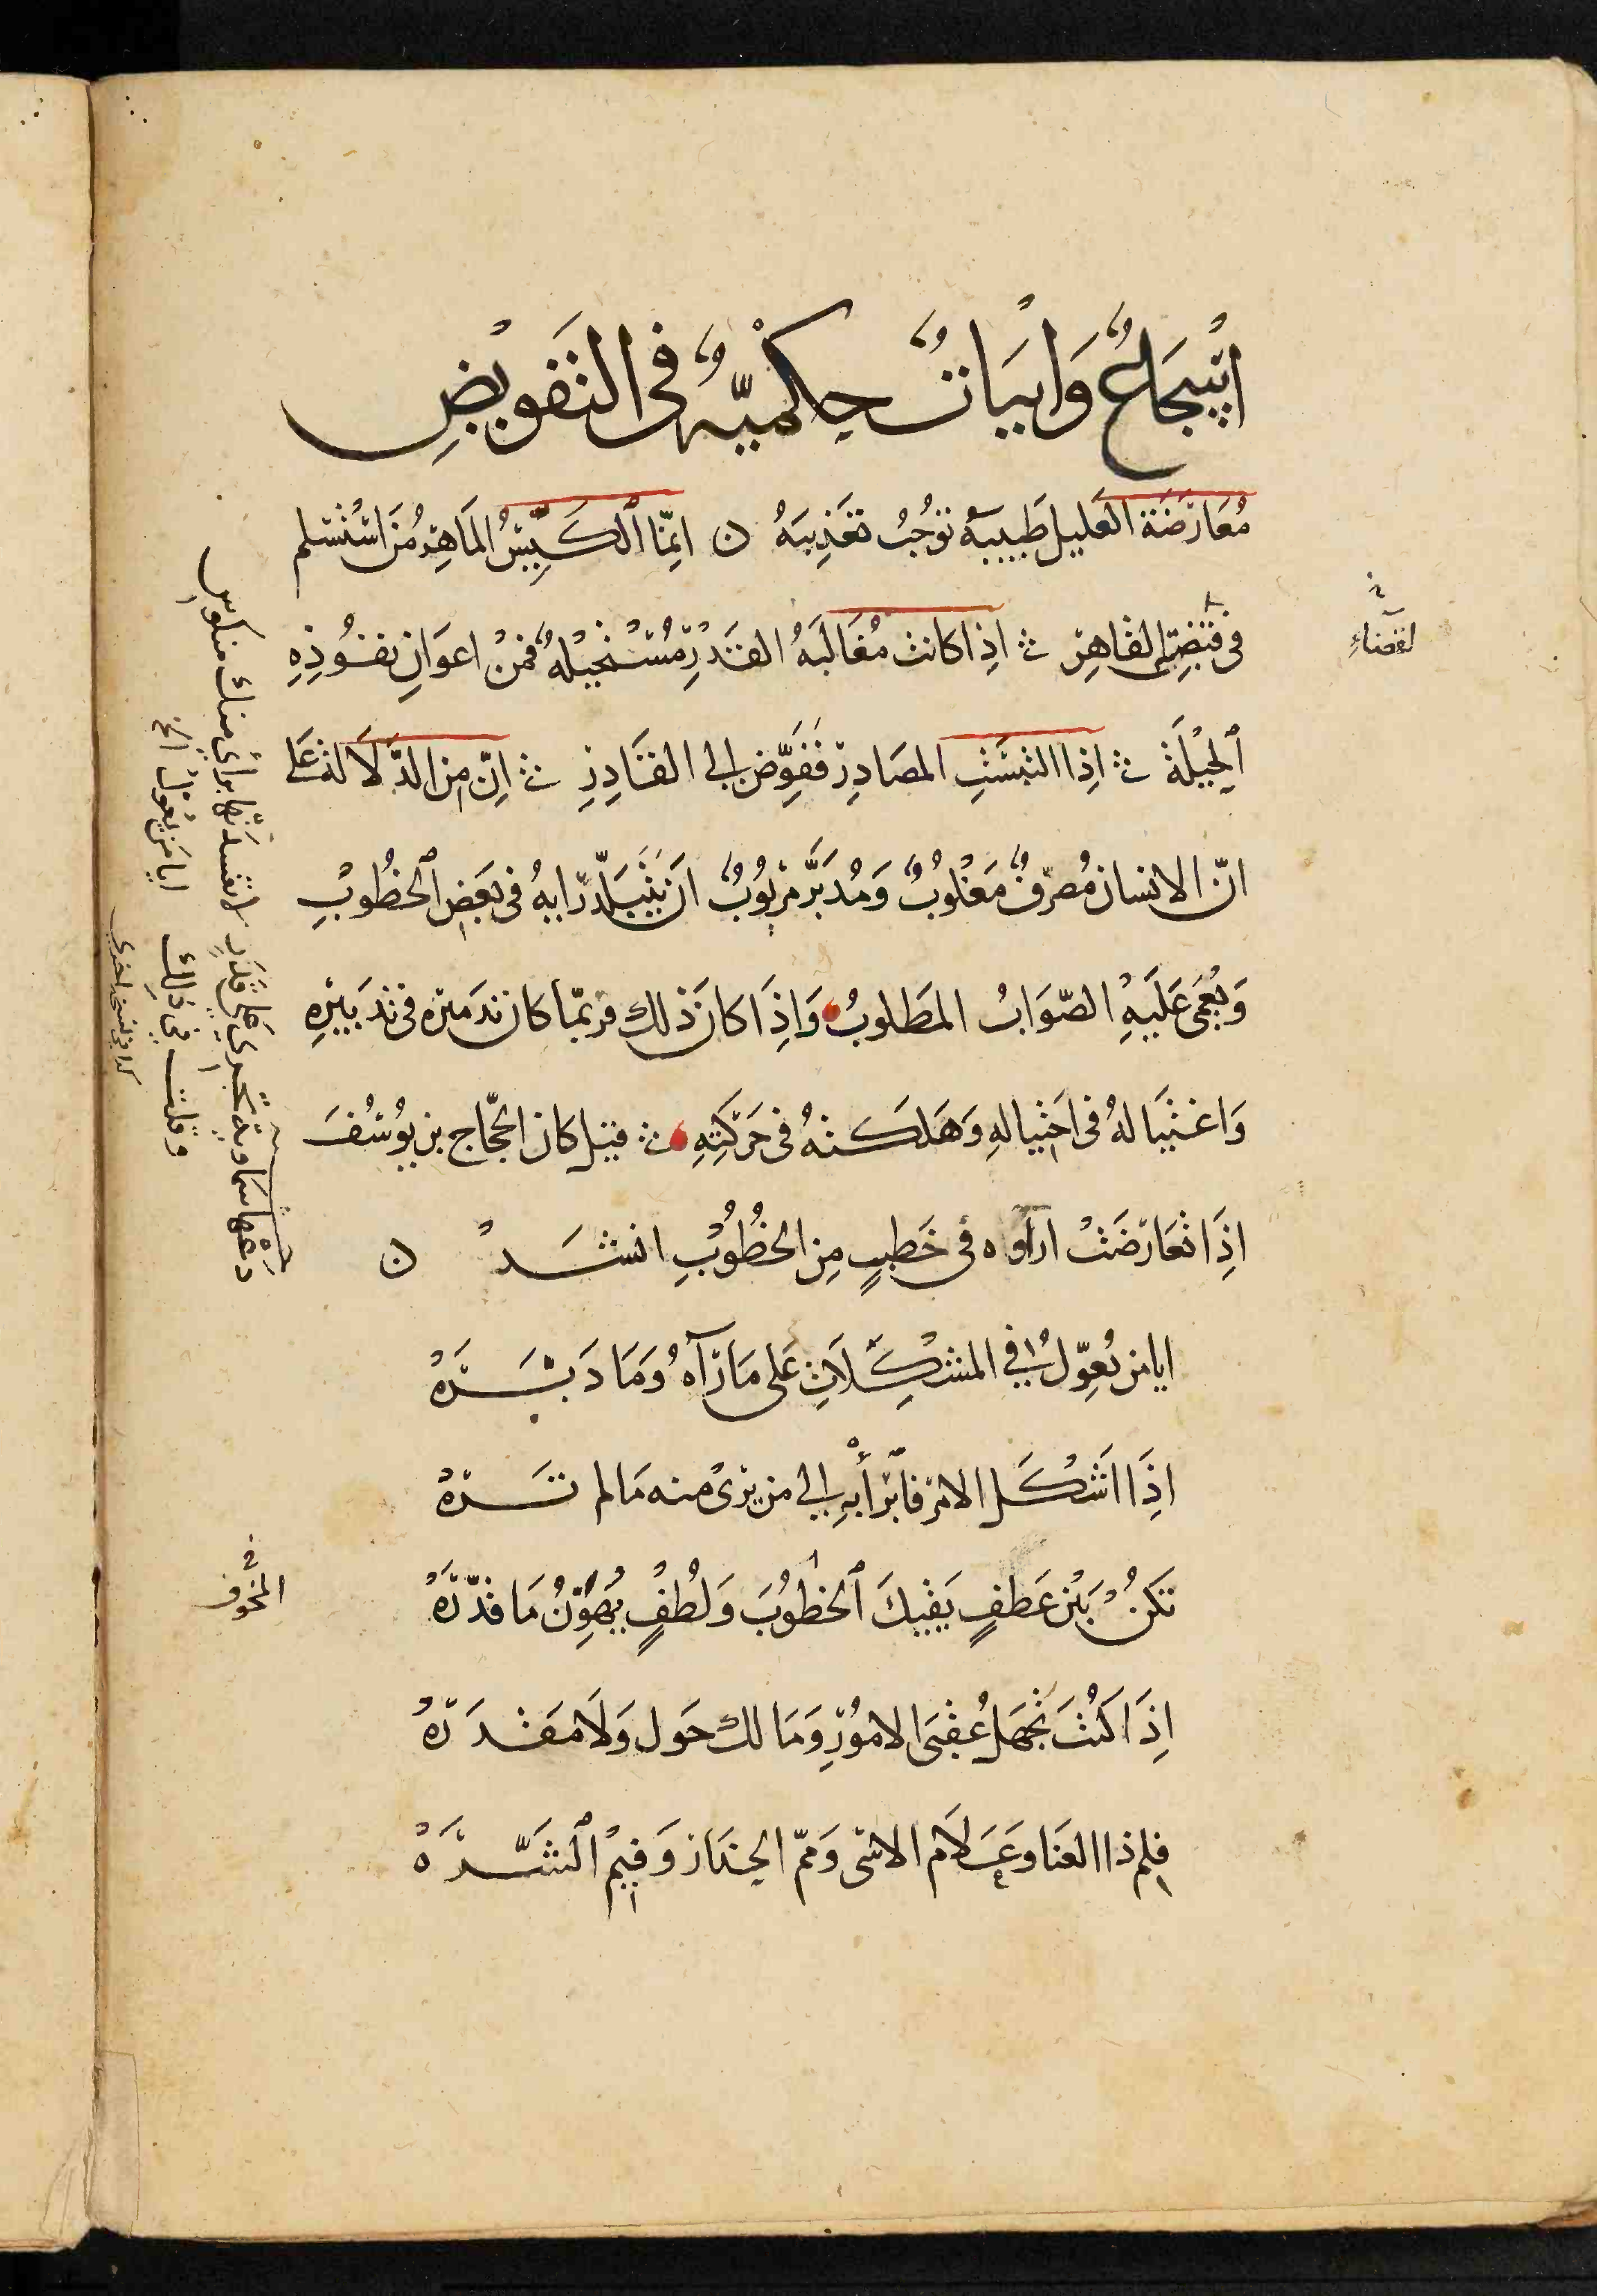 اَسْجَاعٌ وَابْيَاتٌ حِكْميَّةٌ فى التَفويضِ
مُعَارَضَة العَليل طَبيبَهُ توْجُبُ تعَذِيبَهُ ن اِنَّمَا الْكَيِّسُ المَاهِرُ مَنَ اسْتَسْلم
فى قَبْضَةِ القَاهِرِ ث اذِا كانت مُغَالَبَةُ القَدَرِ مُسْتَحْيِلَةٌ فَمِنْ اعوَانِ نفُوذِهِ
اَلحِيْلَةُ ث اِذا التبَسَتِ المصَادِر فَفَوِّض الى القَادِرِ ث اِنّ مِن الدَّلَالَة عَلى
انّ الانسان مُصَرّفٌ مَغلُوبٌ وَمُدَبَّر مَربُوبٌ اَن يَتَبَلّد رَايهُ فى بَعَضِ الخطُوبِ
وَيعُمَى عَلَيهِ الصّوَابُ المَطلوبُ وَاِذَا كانَ ذلك فربّما كان تدميرُه فى تَدبيرِهِ
وَاغتيَالهُ فى احتِيالهِ وَهَلَكتهُ فى حَرَكتِهِ ث قيل كان الحجّاج بن يوُسُفَ
اِذَا تعَارضَتْ اراؤه فى خَطبٍ مِن الخطُوْبِ انشَدْ ن
ايا من يُعوّلُ فى المشْكِلَاتِ عَلى مَا رَآهُ وَمَا دَبَّرَهْ
اِذَا اشْكَل الامر فابْرَأ بهِ الى من يرىُ منه مَا لم تَرَهْ
تَكنُ بَيْن عَطفٍ يَقيكَ الخطُوُبَ وَلُطفٍ يُهَوِّنُ مَا قدّرَهْ
اِذَا كُنتَ تجهَل عُقبَى الامُوُرِ وَمَا لك حَول وَلَا مَقدَرهْ
فلم ذا العَنا وعَلَام الاسَى وَممّ الحِذَار وَفيْمَ الشَّرَهْ
لقضاءِ
المخوف
وقلت فى ذلك ايا من يعول الخ
كذا فى نسخة اخرى